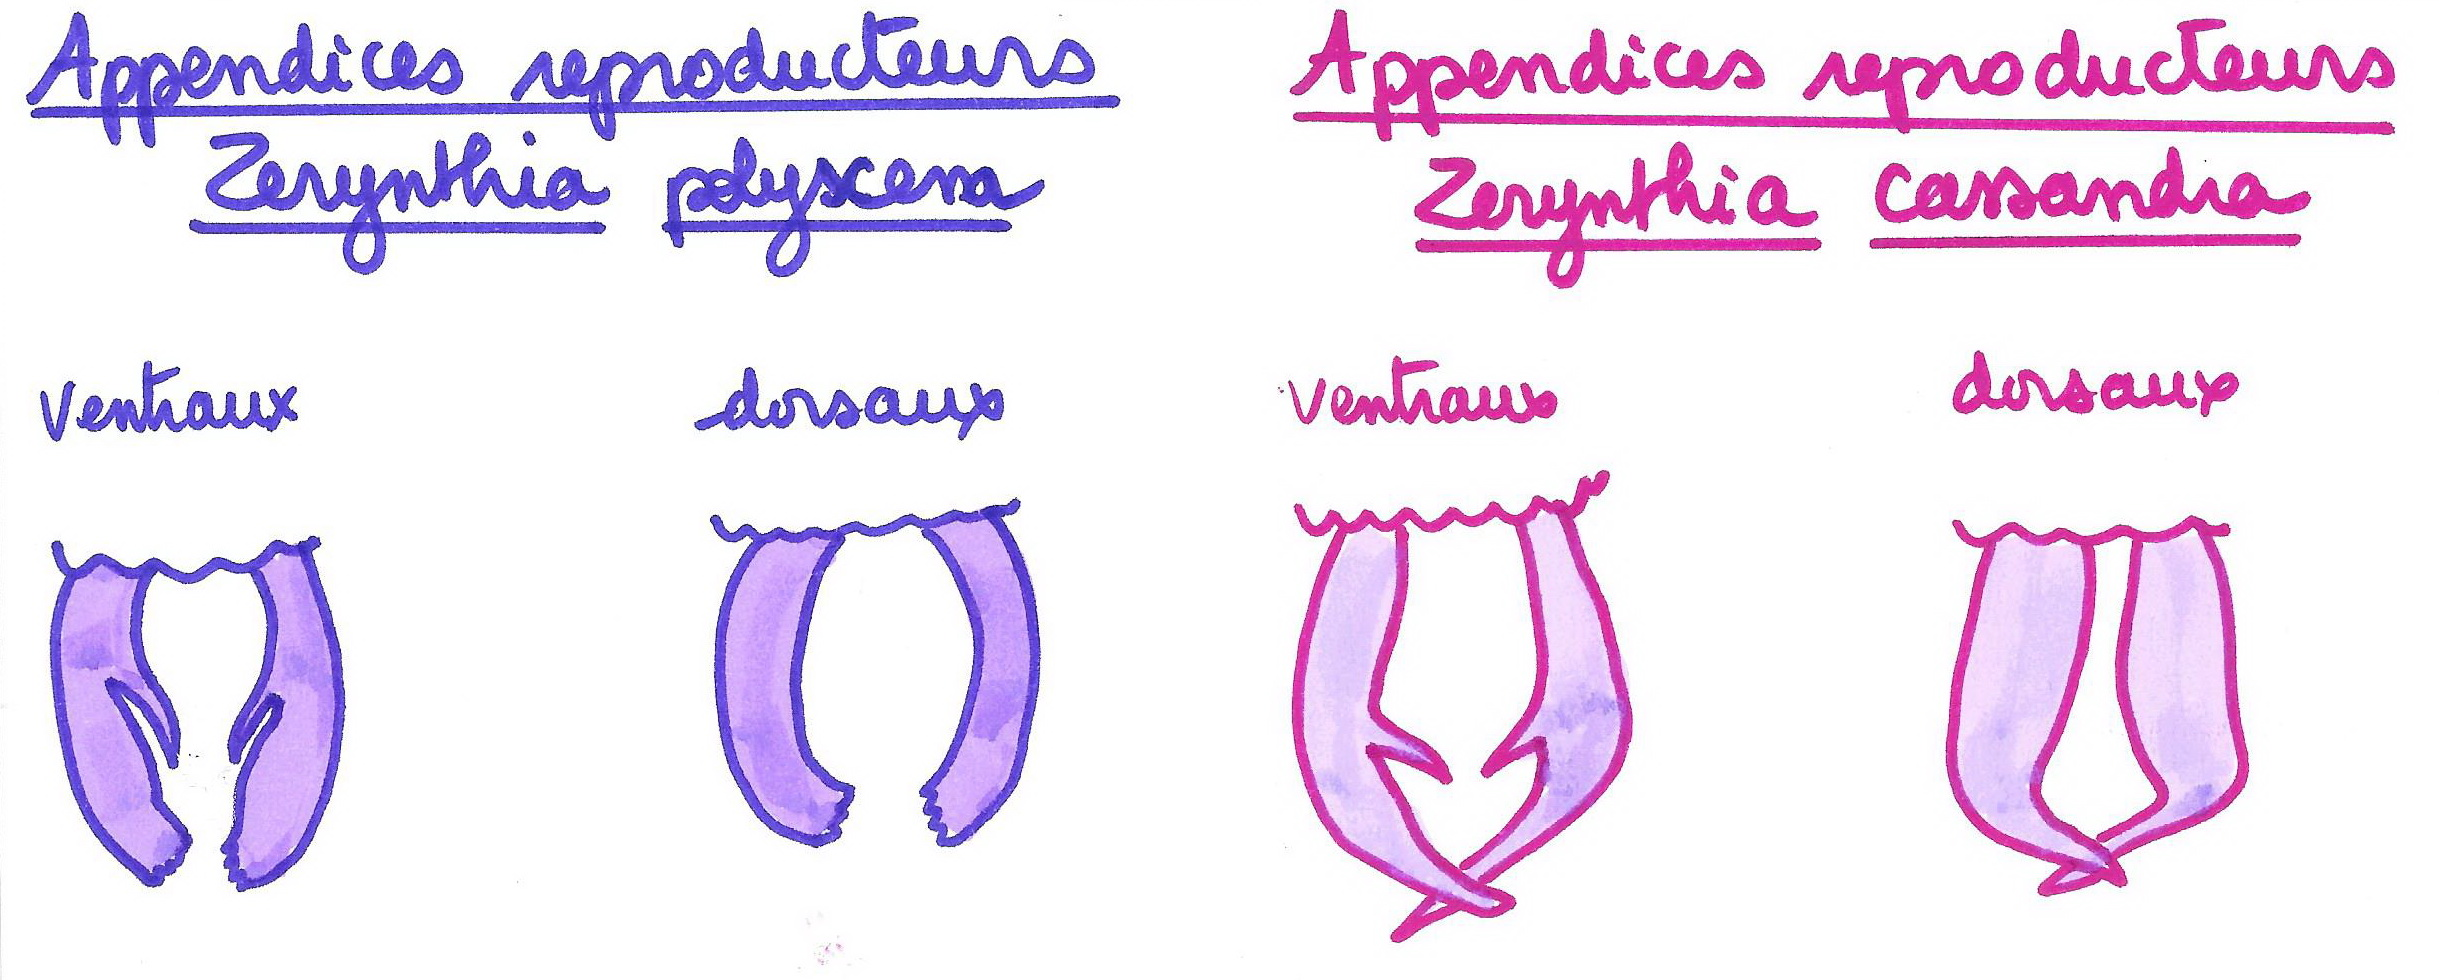 Appendices reproducteurs
Zerynthia polyxcena
ventraux
dorsaux
Appendices reproducteurs
Zerynthia cassandra
ventraux
dorsaux